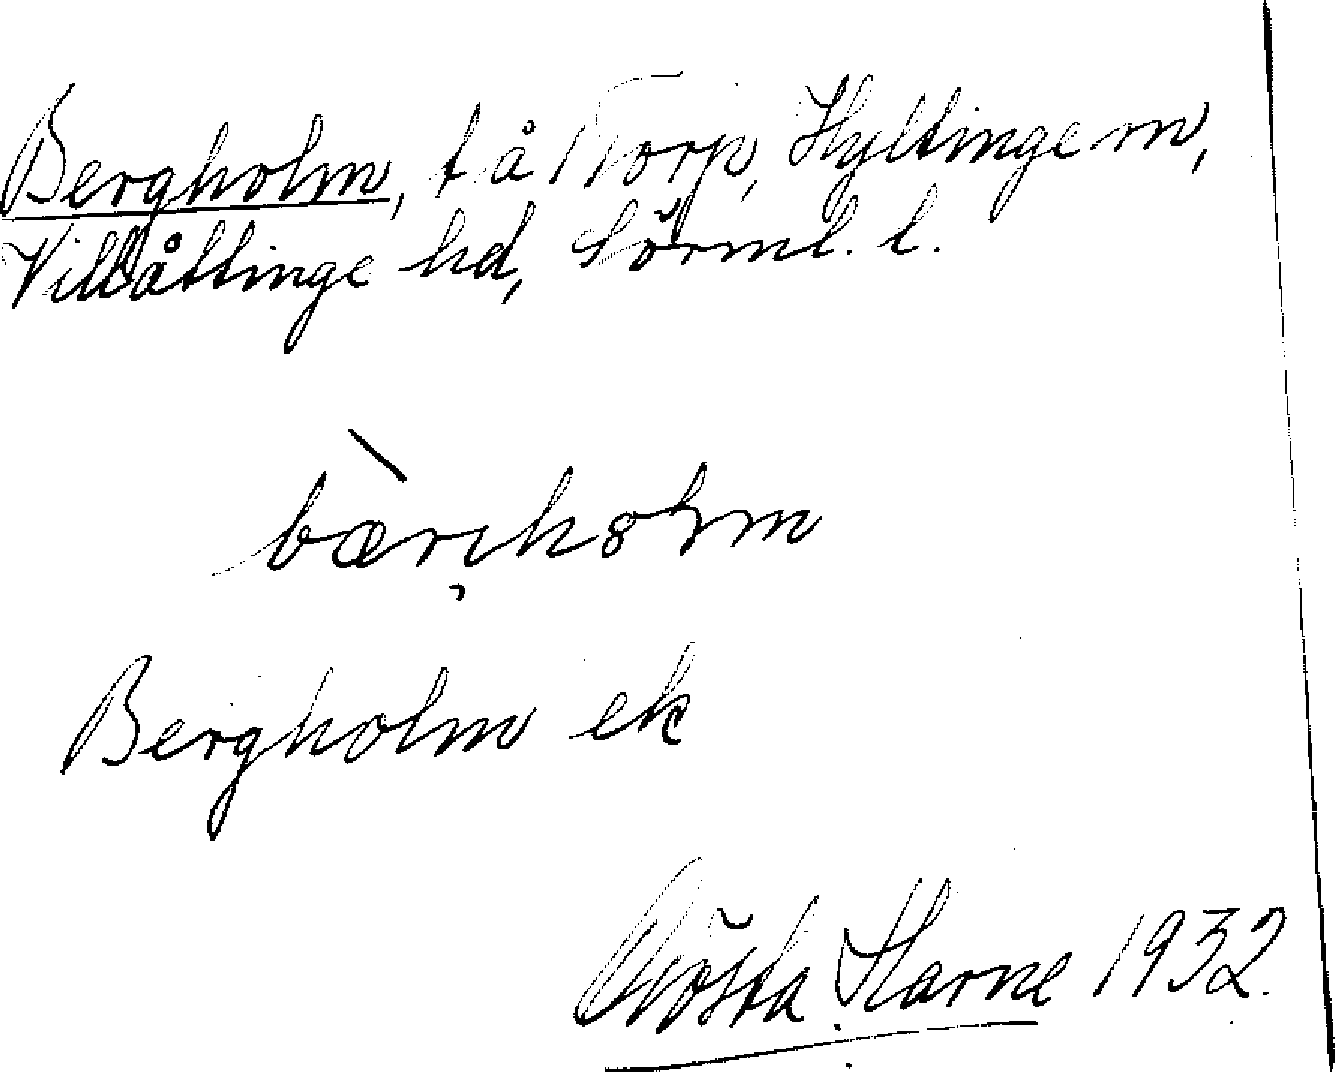 Bergholm, t å Torp, Hyltinge sn,
Villåttinge hd, Sörml. l.
bær̨kholm
Bergholm ek
Gösta Harne 1932.